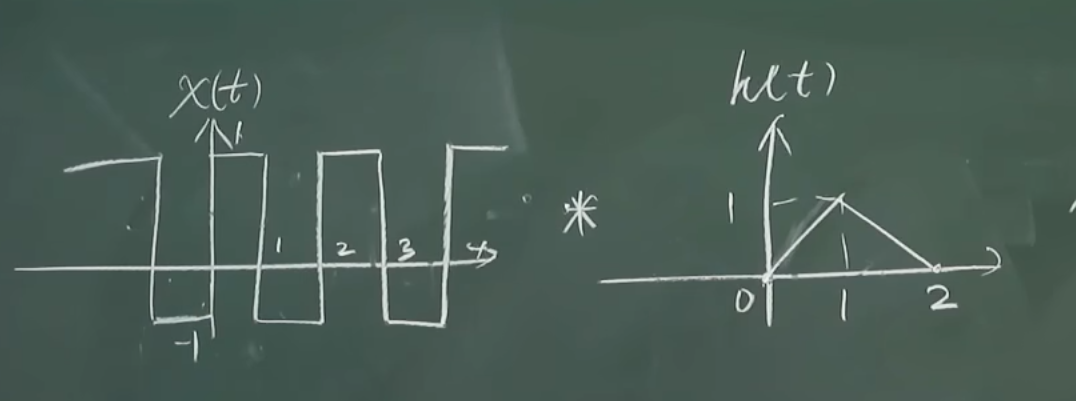 x(t)
1
1 2 3 4
-1
*
h(t)
1
0 1 2